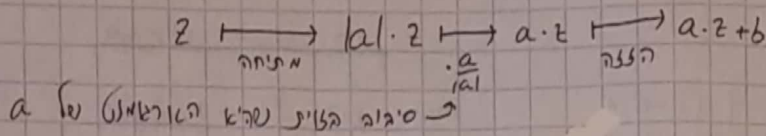 z ⟼ |a|·z ⟼ a·z ⟼ a·z+b
מתיחה · a/|a| הזזה
סיבוב בזווית שהיא הארגומנט של a